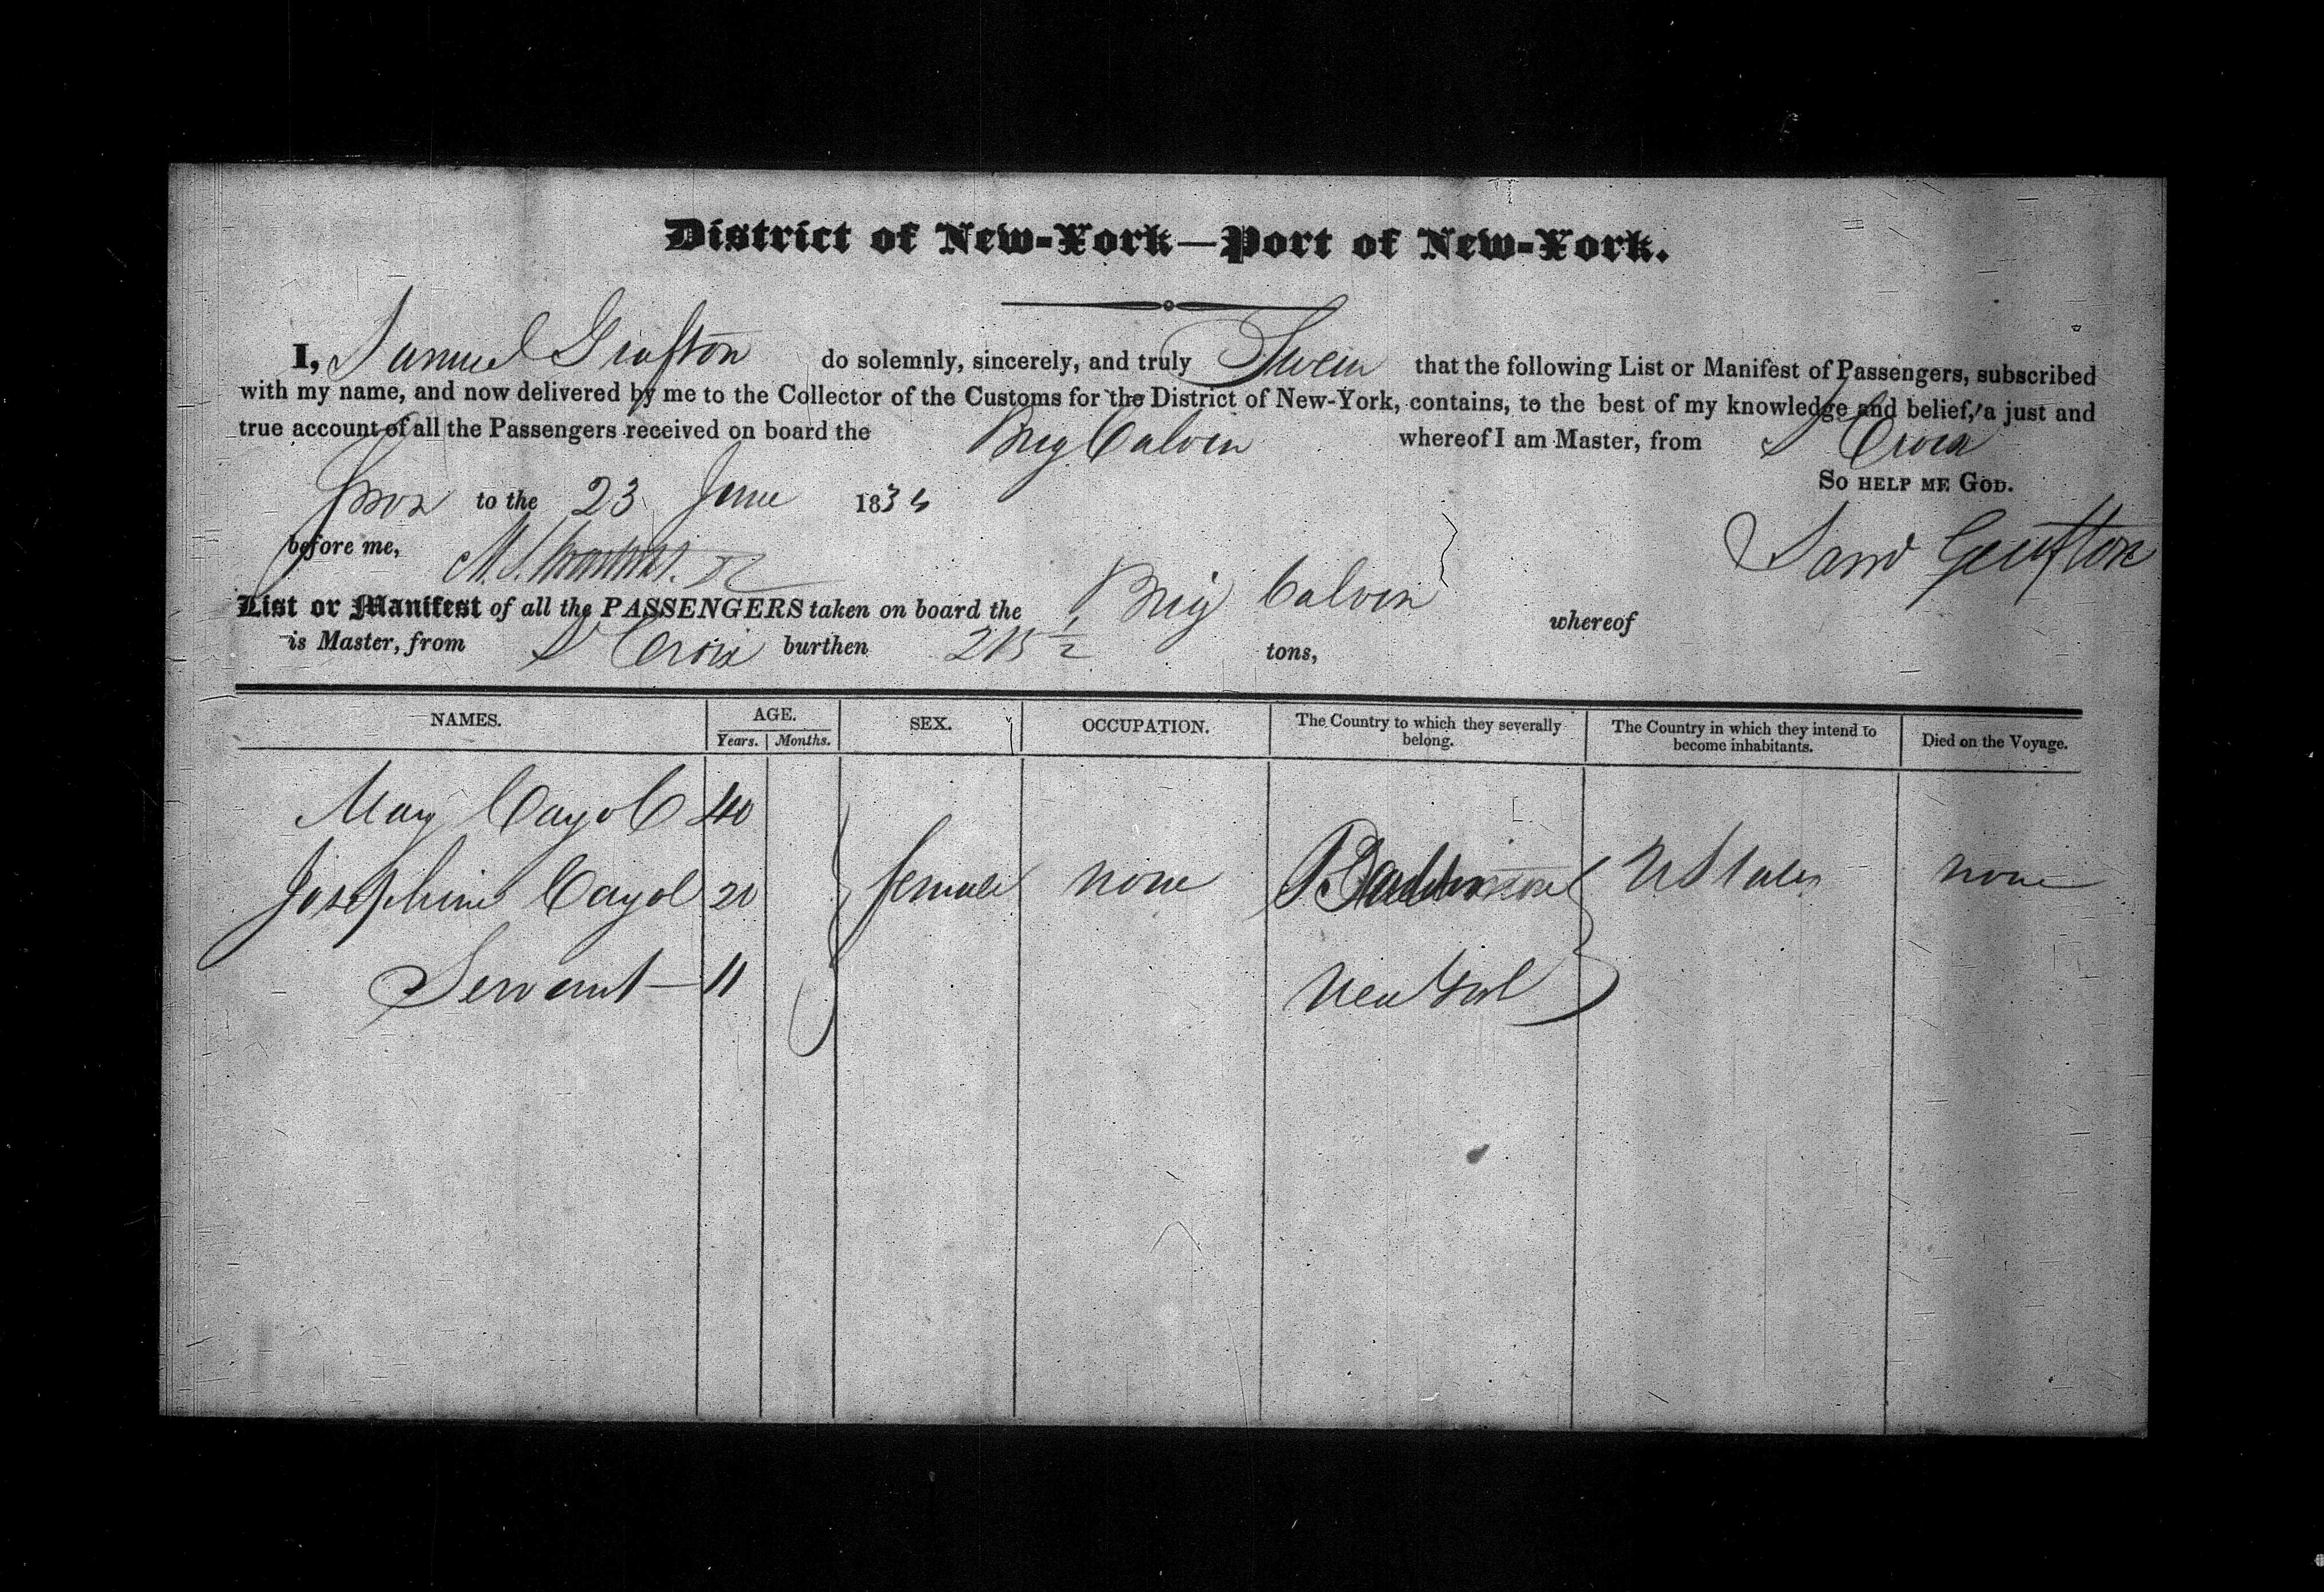 District of New-York—Port of New-York.
I, Samuel Grafton do solemnly, sincerely, and truly Swear that the following List or Manifest of Passengers, subscribed
with my name, and now delivered by me to the Collector of the Customs for the District of New-York, contains, to the best of my knowledge and belief, a just and
true account of all the Passengers received on board the Brig Calvin whereof I am Master, from St Croix
So help me God.
Sworn to the 23 June 183
before me,
Saml Grafton
List or Manifest of all the PASSENGERS taken on board the Brig Calvin whereof
is Master, from St Croix burthen 215 1/2 tons,
NAMES. AGE. SEX. OCCUPATION. The Country to which they severally belong. The Country in which they intend to become inhabitants. Died on the Voyage.
Years. Months.
Mary Cayol 40
Josephine Cayol 20 female none U States none
Servant — 11